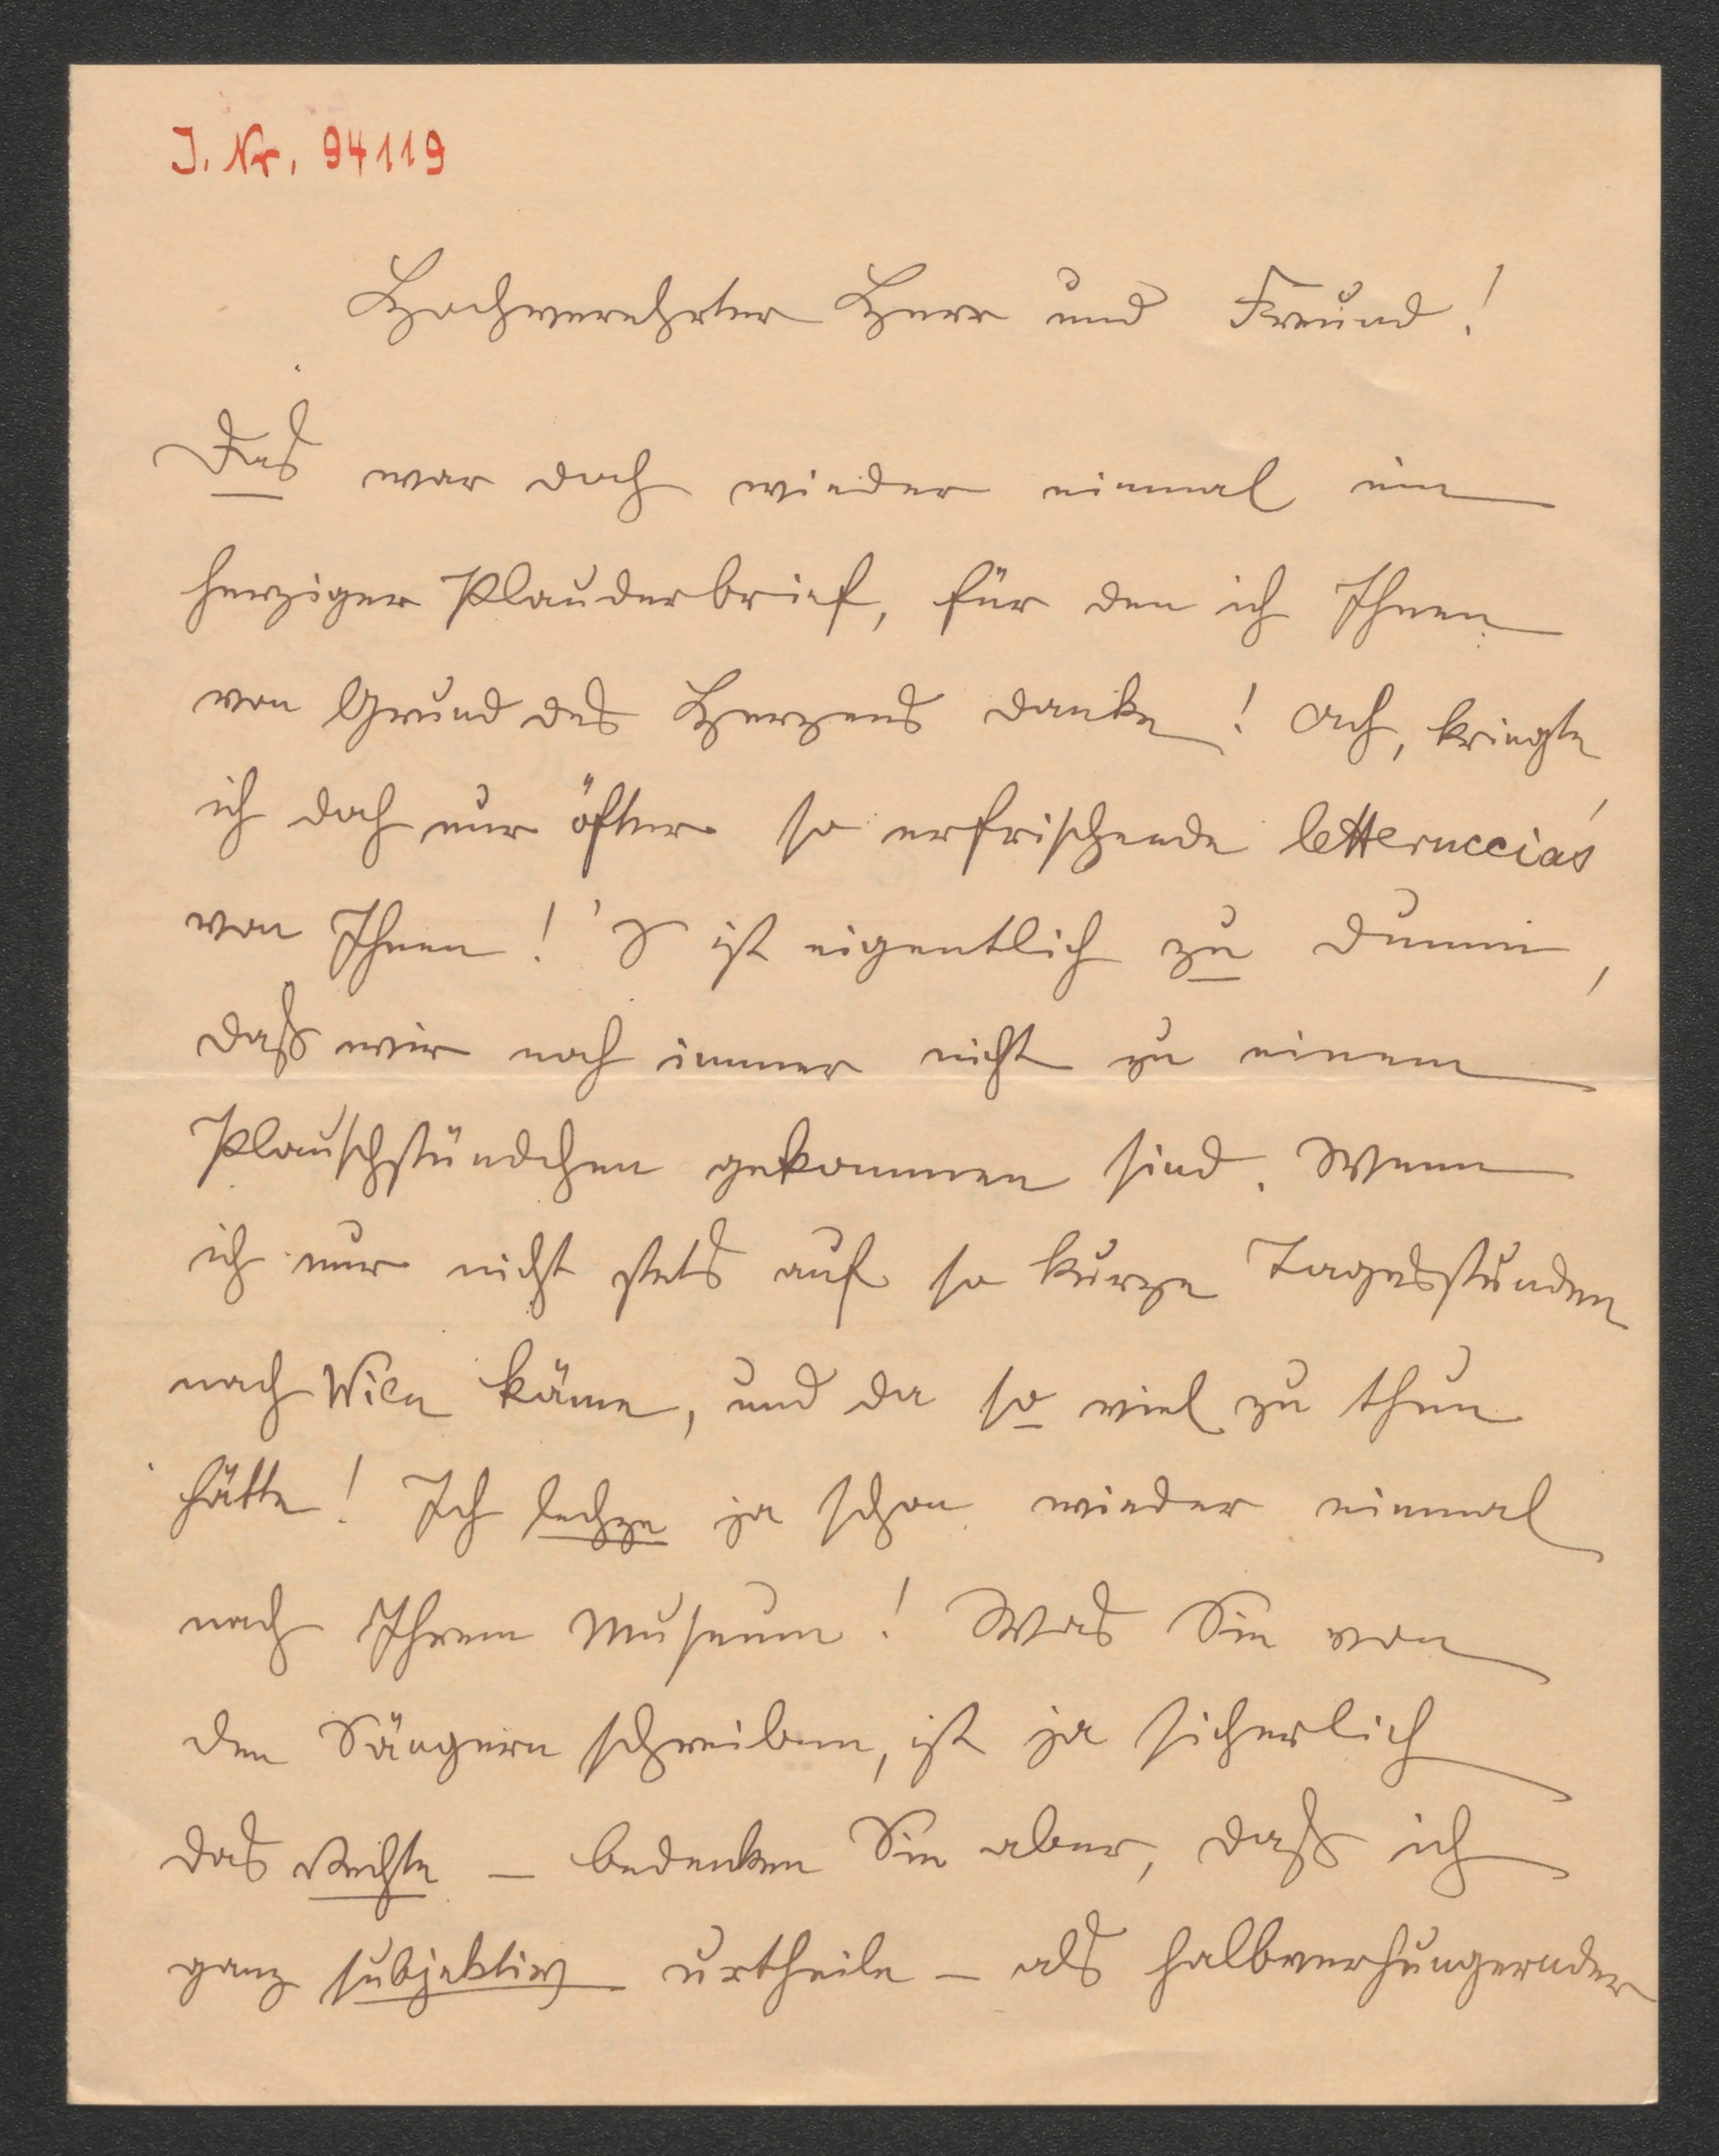 J. Nr. 94119
Hochverehrter Herr und Freund!
Das war doch wieder einmal ein
herziger Plauderbrief, für den ich Ihnen
von Grund des Herzens danke! Ach, kriegte
ich doch nur öfter so erfrischende letteruccia's
von Ihnen! 'S ist eigentlich zu dumm,
daß wir noch immer nicht zu einem
Plauschstündchen gekommen sind. Wenn
ich nur nicht stets auf so kurze Tagesstunden
nach Wien käme, und da so viel zu thun
hätte! Ich lechze ja schon wieder einmal
nach Ihrem Museum! Was Sie von
den Sängern schreiben, ist ja sicherlich
das Rechte – bedenken Sie aber, daß ich
ganz subjektiv urtheile – als halbverhungernder